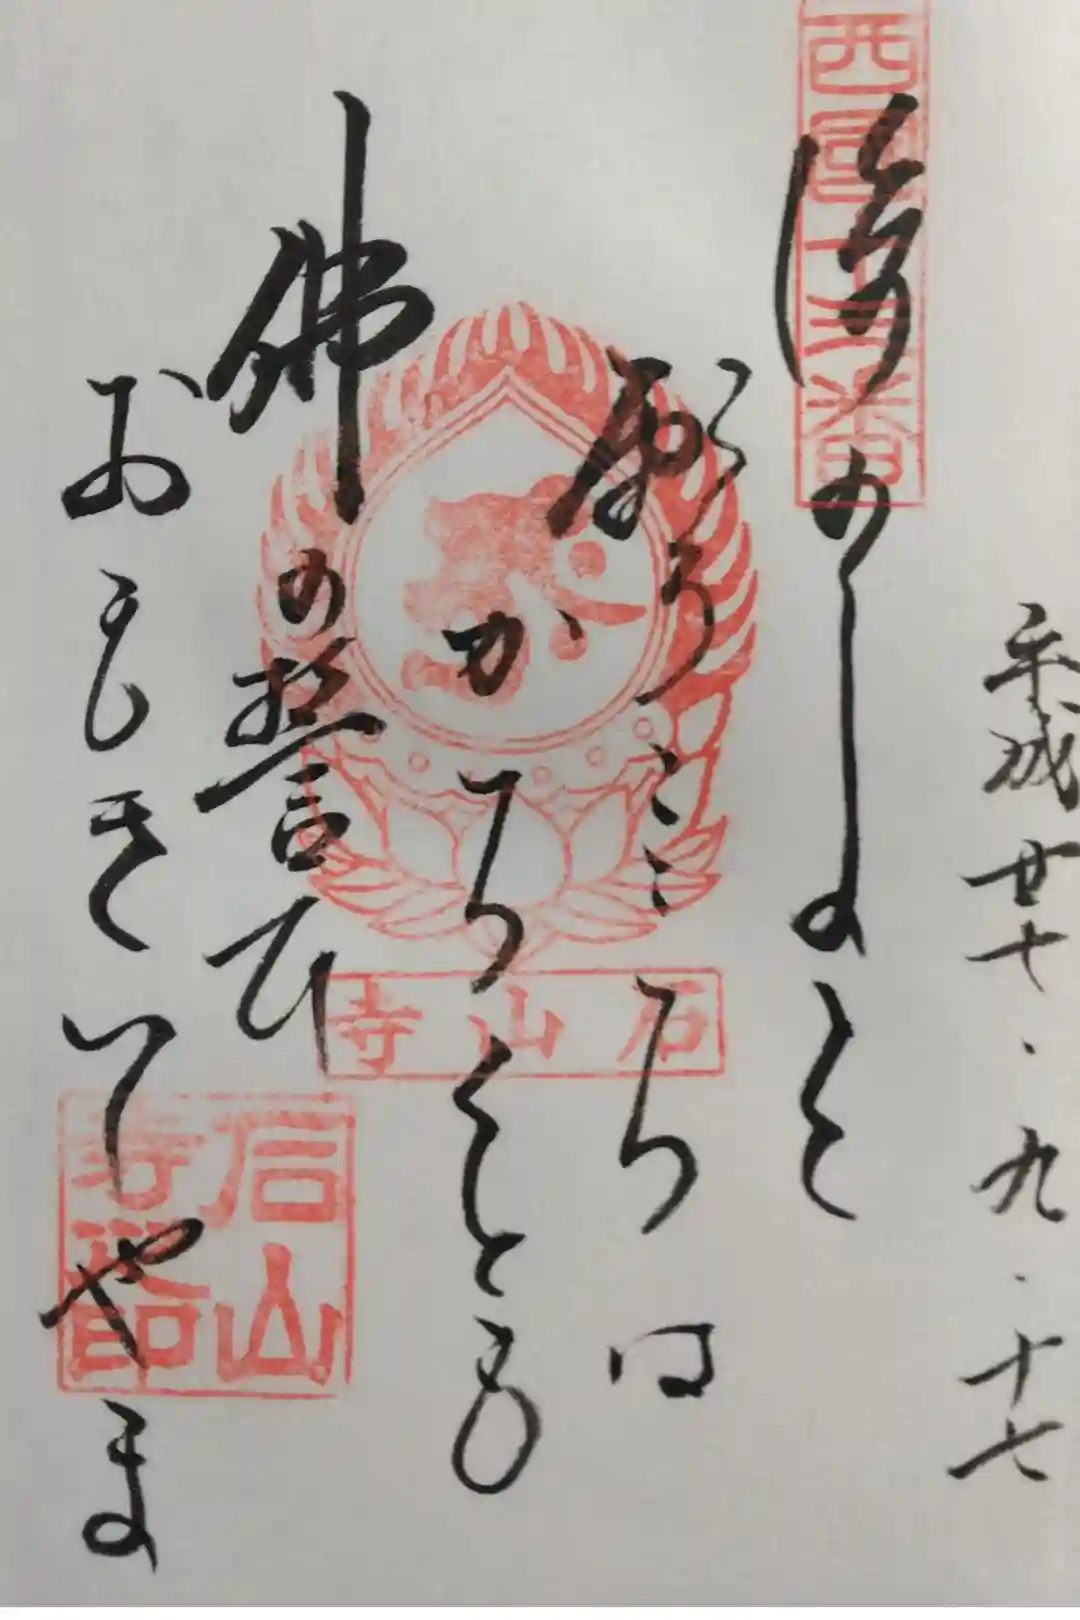 平成廿七・九・十七
西国十三番
後のよを
願うこころは
かろくとも
佛の誓ひ
おもきいしやま
石山寺
石山寺